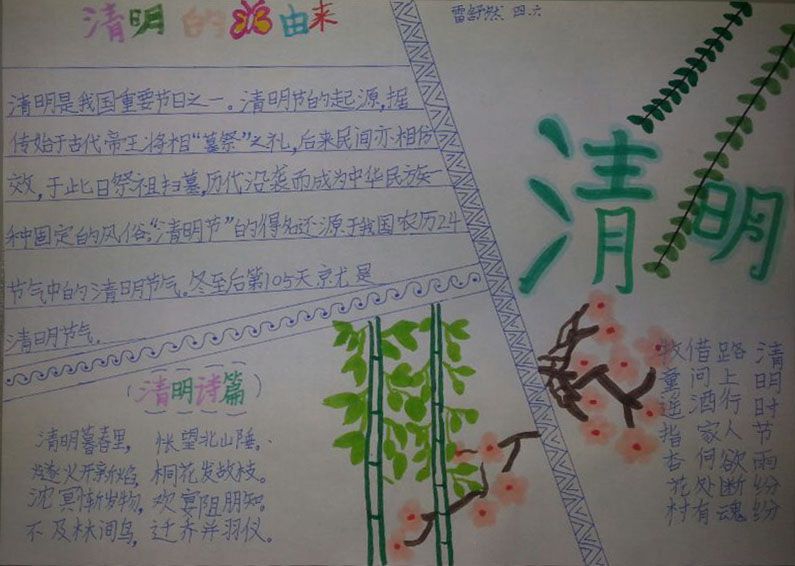 清明的由来
雷舒然 四.六
清明是我国重要节日之一。清明节的起源,据
传始于古代帝王将相“墓祭”之礼,后来民间亦相仿
效,于此日祭祖扫墓,历代沿袭而成为中华民族一
种固定的风俗。“清明节”的得名还源于我国农历24
节气中的清明节气。冬至后第105天就是
清明节气.
清明
清明诗篇
清明暮春里, 怅望北山陲。
燧火开新焰, 桐花发故枝。
沈冥惭岁物, 欢宴阻朋知。
不及林间鸟, 迁乔并羽仪。
清明时节雨纷纷
路上行人欲断魂
借问酒家何处有
牧童遥指杏花村